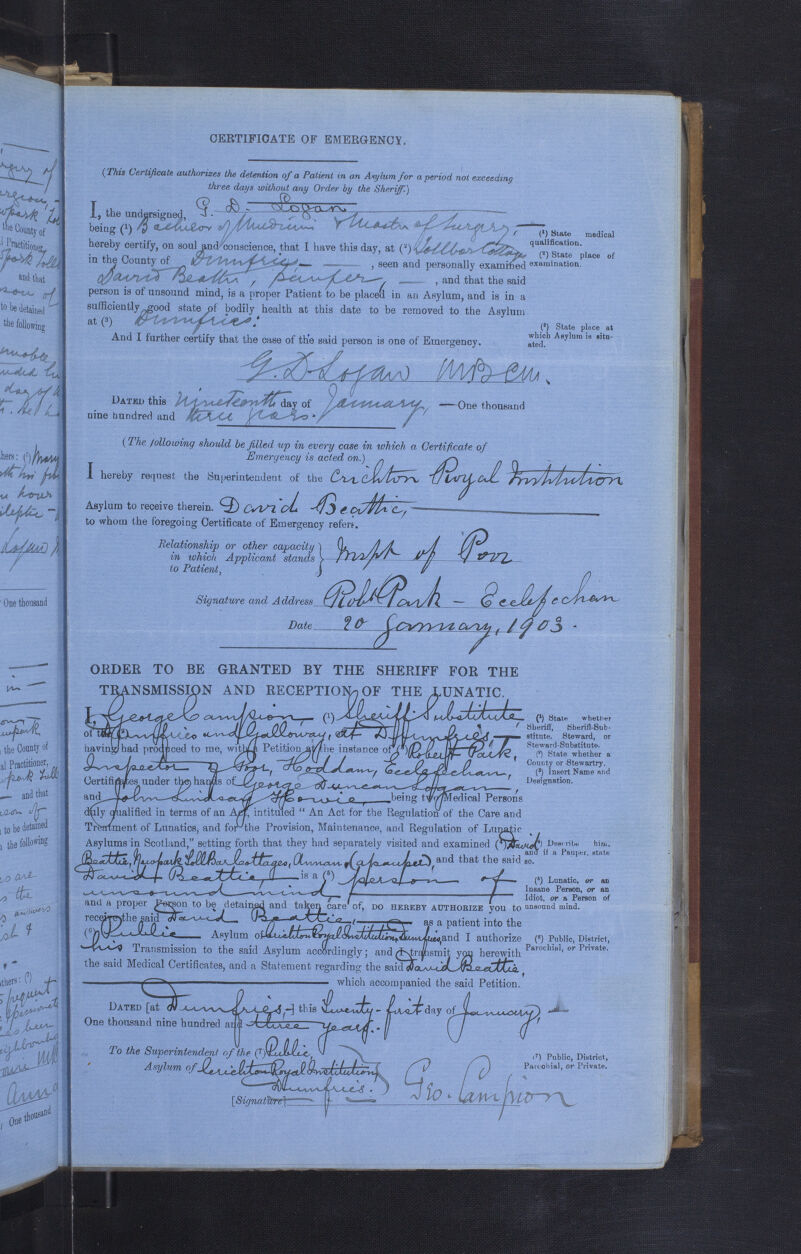 CERTIFICATE OF EMERGENCY.
(This Certificate authorizes the detention of a Patient in an Asylum for a period not exceeding
three days without any Order by the Sheriff.)
I, the undersigned, G. D. Logan
being (1) Bachelor of Medicine & Master of Surgery,
(1) State medical
qualification.
hereby certify, on soul and conscience, that I have this day, at (2) Tollbar Cottages
(2) State place of
examination.
in the County of Dumfries, seen and personally examined
David Beattie, pauper, and that the said
person is of unsound mind, is a proper Patient to be placed in an Asylum, and is in a
sufficiently good state of bodily health at this date to be removed to the Asylum
at (3) Dumfries.
(3) State place at
which Asylum is situ-
ated.
And I further certify that the case of the said person is one of Emergency.
G D Logan MB CM.
DATED this Nineteenth day of January, — One thousand
nine hundred and three years.
(The following should be filled up in every case in which a Certificate of
Emergency is acted on.)
I hereby request the Superintendent of the Crichton Royal Institution
Asylum to receive therein. David Beattie,
to whom the foregoing Certificate of Emergency refers.
Relationship or other capacity
in which Applicant stands
to Patient,
Inspr of Poor
Signature and Address Robt Park - Ecclefechan
Date 20 January, 1903.
ORDER TO BE GRANTED BY THE SHERIFF FOR THE
TRANSMISSION AND RECEPTION OF THE LUNATIC.
I, George Campion, (1) Sheriff Substitute,
of Dumfries and Galloway, at Dumfries,
(1) State whether
Sheriff, Sheriff-Sub-
stitute, Steward, or
Steward-Substitute.
having had produced to me, with a Petition at the instance of (3) Robert Park,
(2) State whether a
County or Stewartry.
Inspector of Poor, Hoddam, Ecclefechan,
(3) Insert Name and
Designation.
Certificates under the hands of George Duncan Logan,
and John Lindsay Howie, being two Medical Persons
duly qualified in terms of an Act, intituled "An Act for the Regulation of the Care and
Treatment of Lunatics, and for the Provision, Maintenance, and Regulation of Lunatic
Asylums in Scotland," setting forth that they had separately visited and examined (4) David
(4) Describe him,
and if a Pauper, state
so.
Beattie, Newpark Toll Bar Cottages, Annan (a pauper), and that the said
David Beattie is a (5) person of
unsound mind,
(5) Lunatic, or an
Insane Person, or an
Idiot, or a Person of
unsound mind.
and a proper Person to be detained and taken care of, DO HEREBY AUTHORIZE YOU to
receive the said David Beattie, as a patient into the
(6) Public Asylum of Crichton Royal Institution, Dumfries, and I authorize
(6) Public, District,
Parochial, or Private.
his Transmission to the said Asylum accordingly; and I transmit you herewith
the said Medical Certificates, and a Statement regarding the said David Beattie,
which accompanied the said Petition.
DATED [at Dumfries,] this Twenty-first day of January,
One thousand nine hundred and three years.
To the Superintendent of the (7) Public,
Asylum of Crichton Royal Institution,
Dumfries.
(7) Public, District,
Parochial, or Private.
[Signature] Geo. Campion